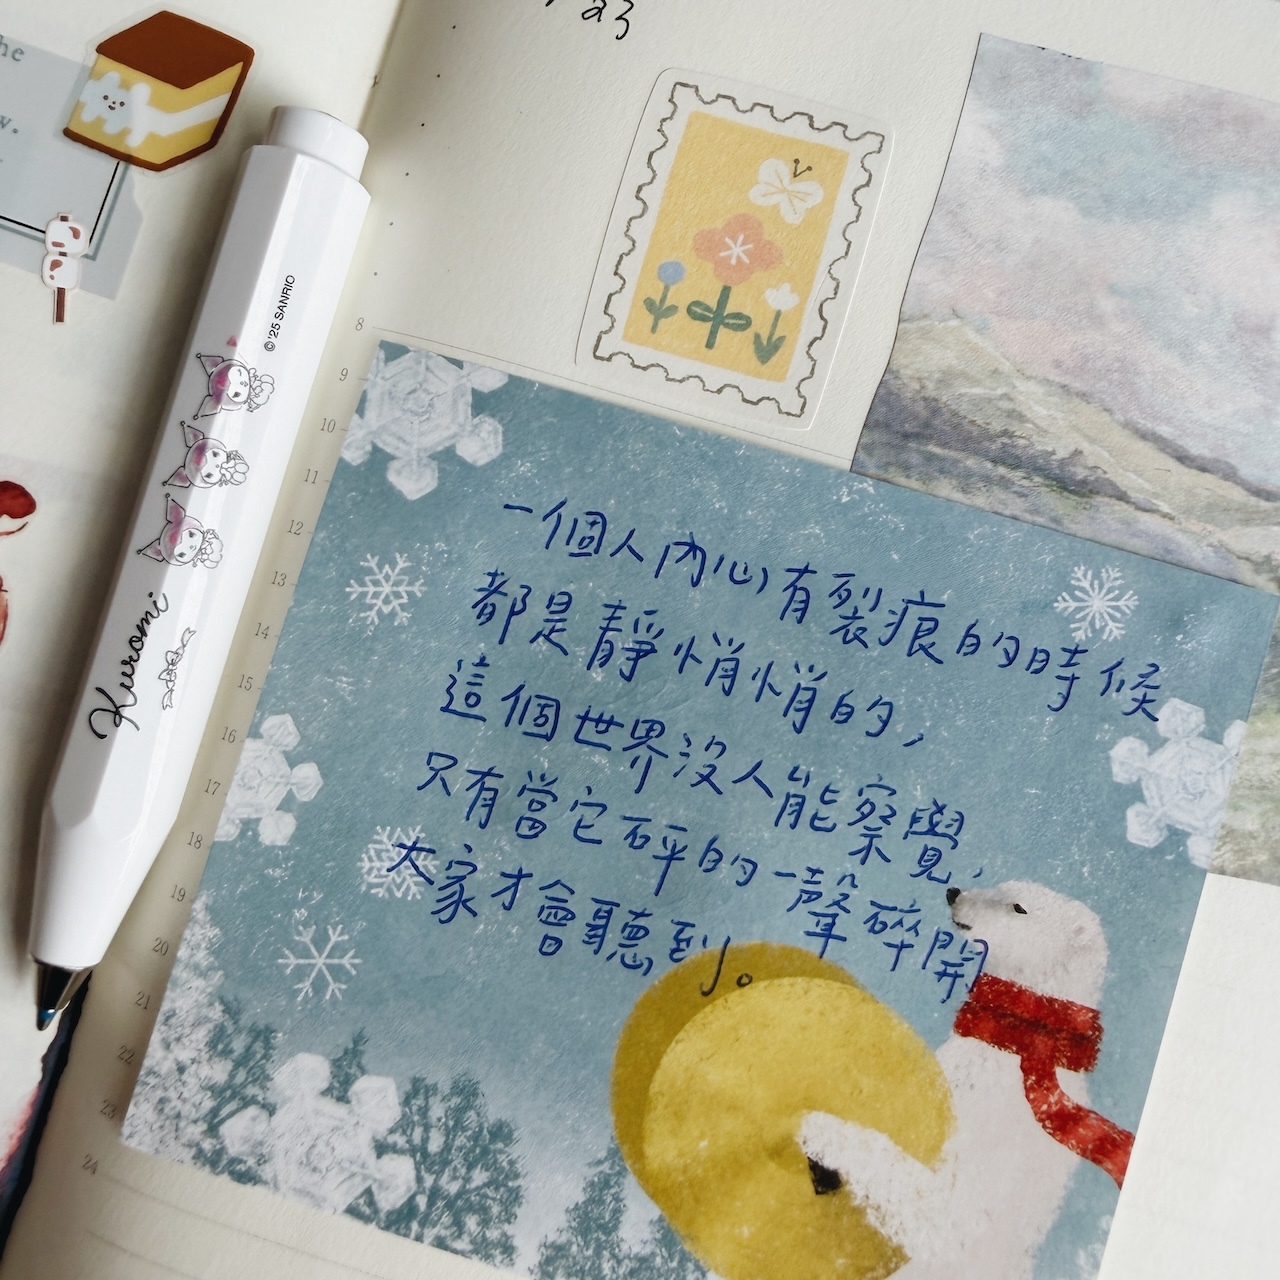 he
w.
23
© '25 SANRIO
Kuromi
8
9
10
11
12
13
14
15
16
17
18
19
20
21
22
23
24
一個人內心有裂痕的時候
都是靜悄悄的,
這個世界沒人能察覺,
只有當它砰的一聲碎開
大家才會聽到。